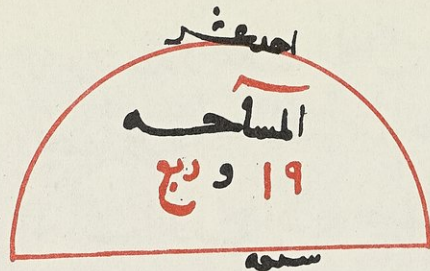 احد عشر
المساحه
١٩ و ربع
سبعه